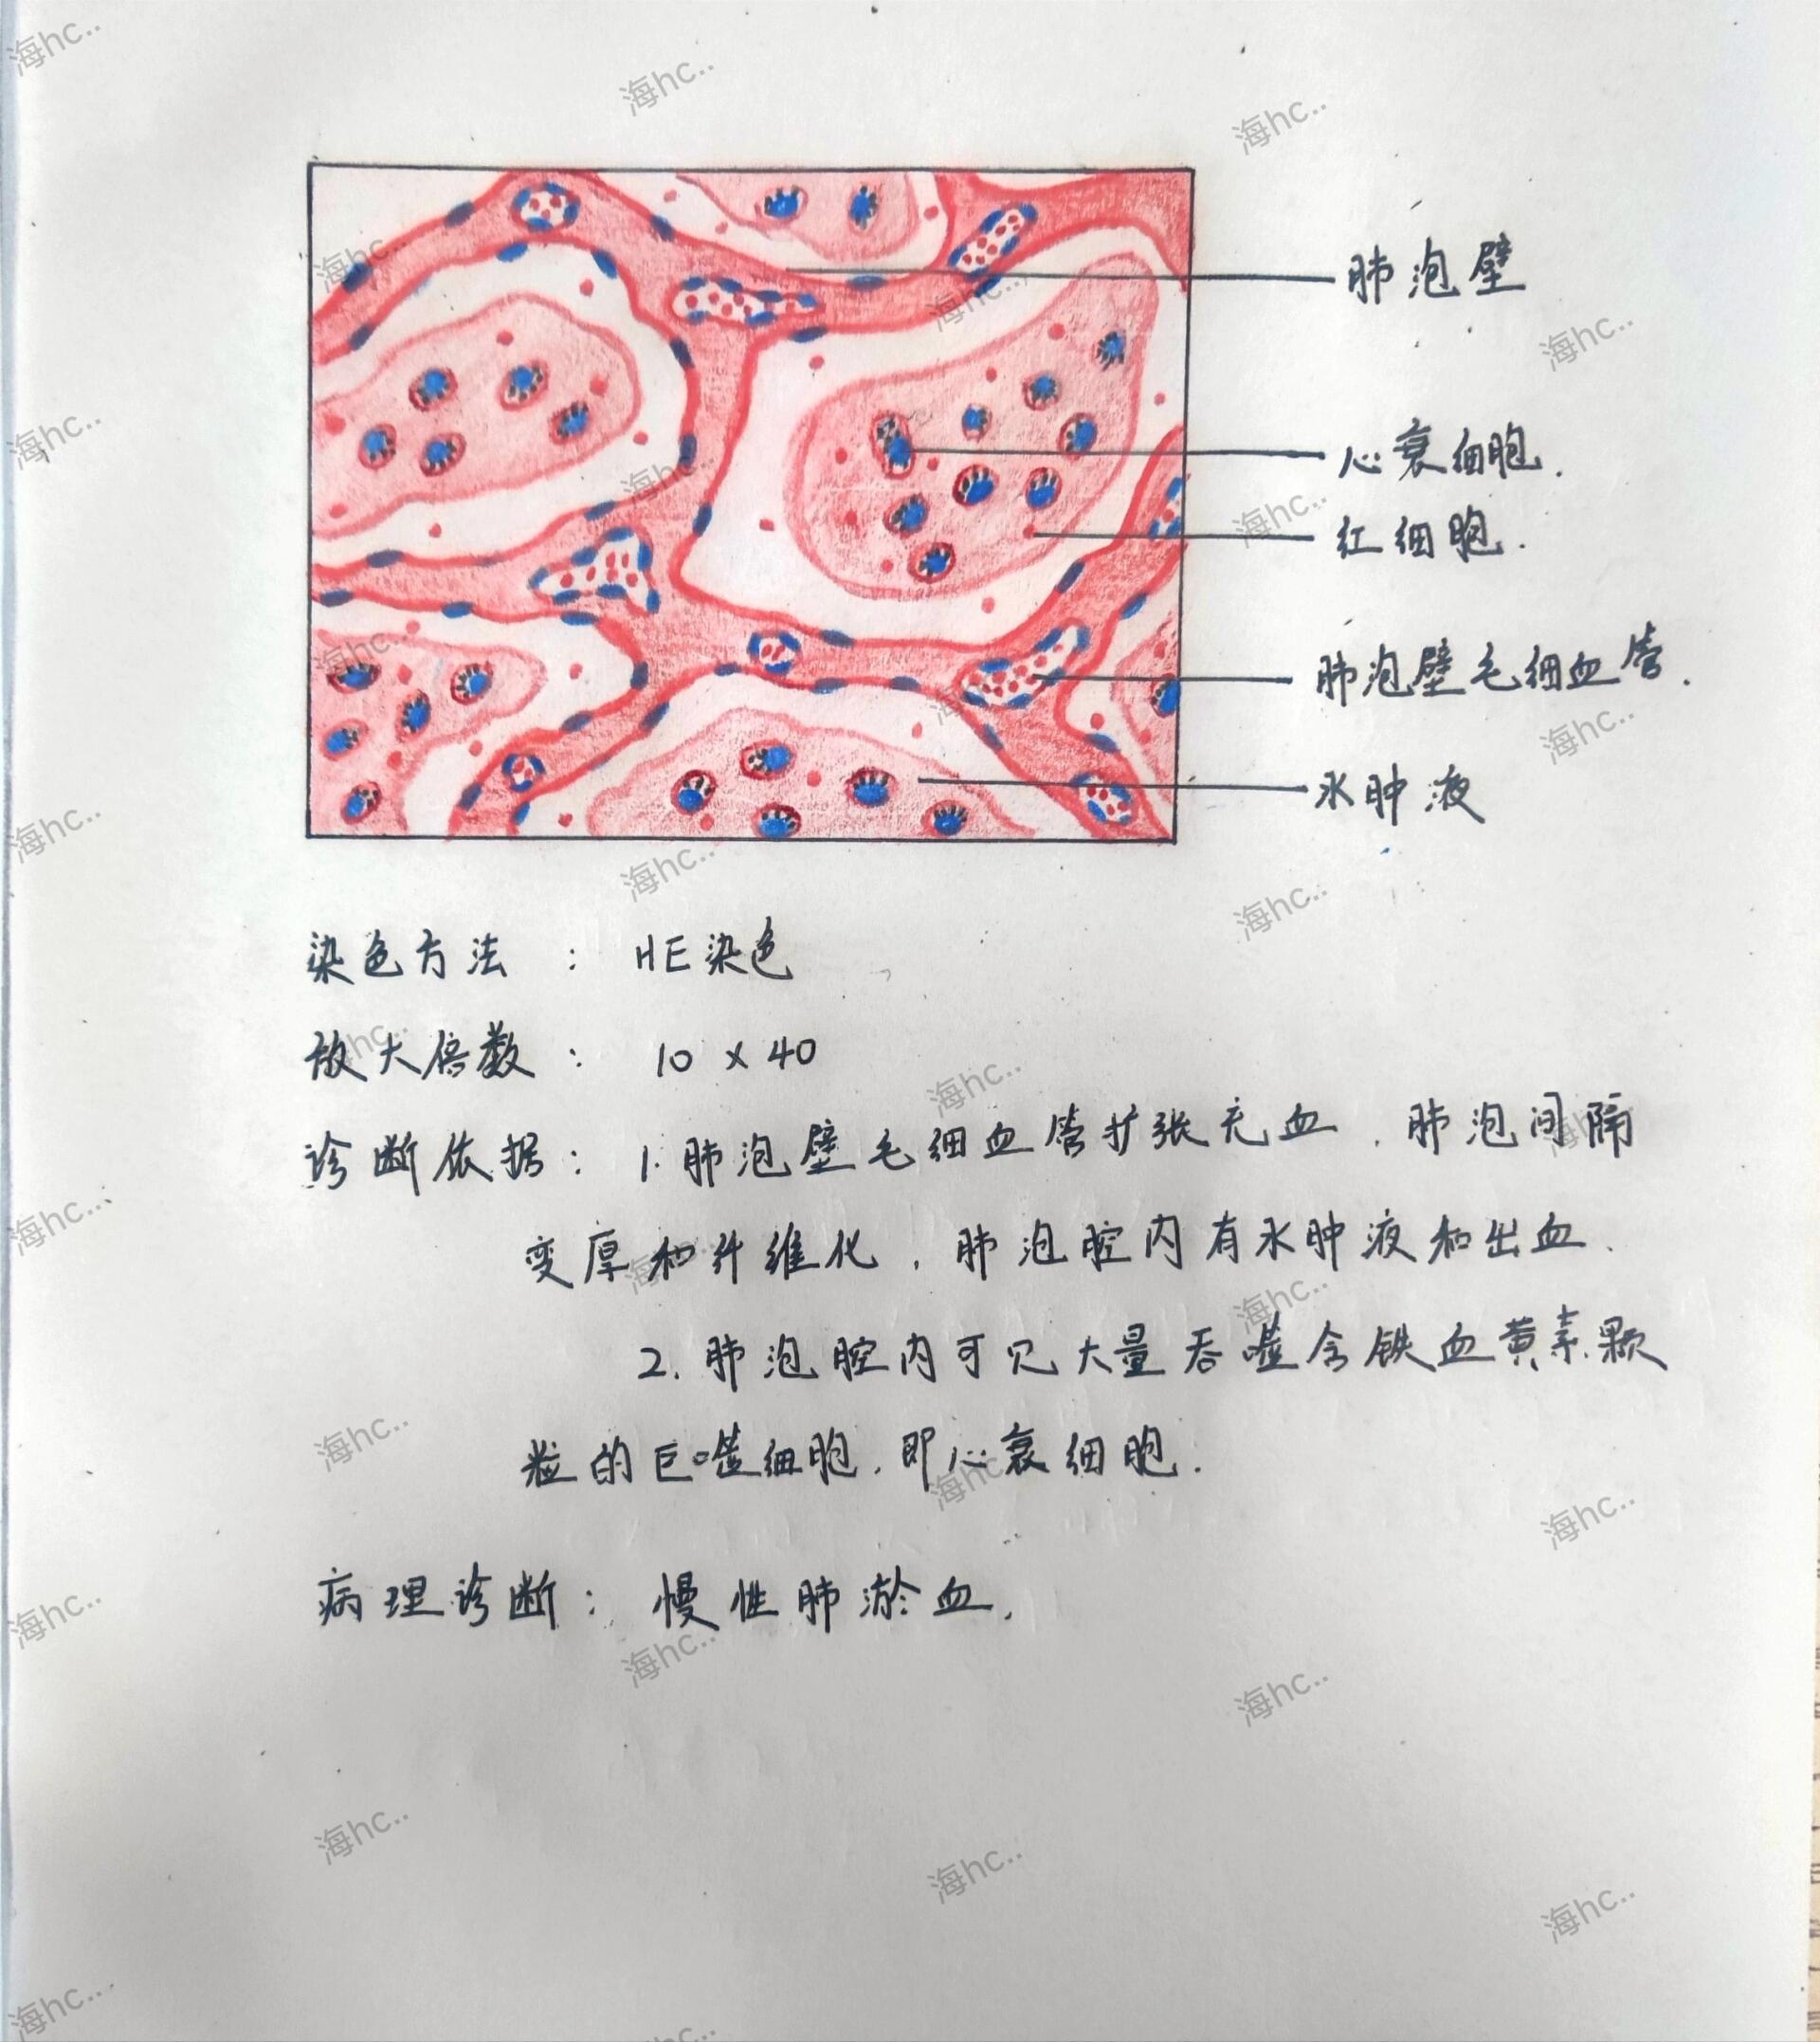 肺泡壁
心衰细胞.
红细胞.
肺泡壁毛细血管.
水肿液
染色方法：HE染色
放大倍数：10×40
诊断依据：1.肺泡壁毛细血管扩张充血，肺泡间隔
变厚和纤维化，肺泡腔内有水肿液和出血.
2.肺泡腔内可见大量吞噬含铁血黄素颗
粒的巨噬细胞，即心衰细胞.
病理诊断：慢性肺淤血.
海hc..